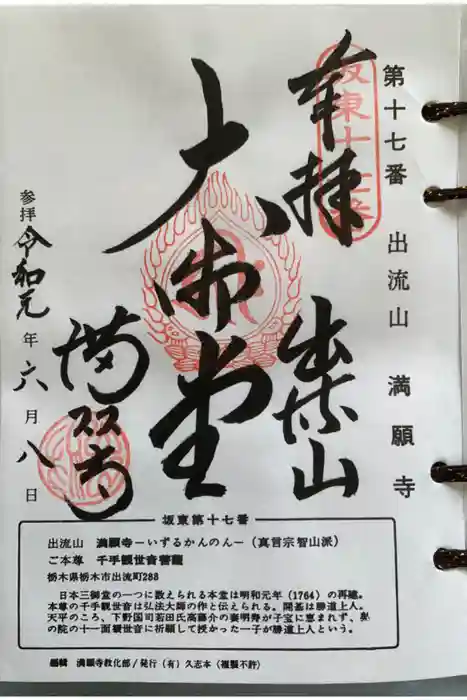 第十七番 出流山 満願寺
坂東十七番
奉拝
出流山
大御堂
満願寺
参拝 令和元年六月八日
坂東第十七番
出流山 満願寺ーいずるかんのんー(真言宗智山派)
ご本尊 千手観世音菩薩
栃木県栃木市出流町288
日本三御堂の一つに数えられる本堂は明和元年(1764)の再建。
本尊の千手観世音は弘法大師の作と伝えられる。開基は勝道上人。
天平のころ、下野国司若田氏高藤介の妻明寿が子宝に恵まれず、奥
の院の十一面観世音に祈願して授かった一子が勝道上人という。
編輯 満願寺教化部/発行(有)久志本(複製不許)